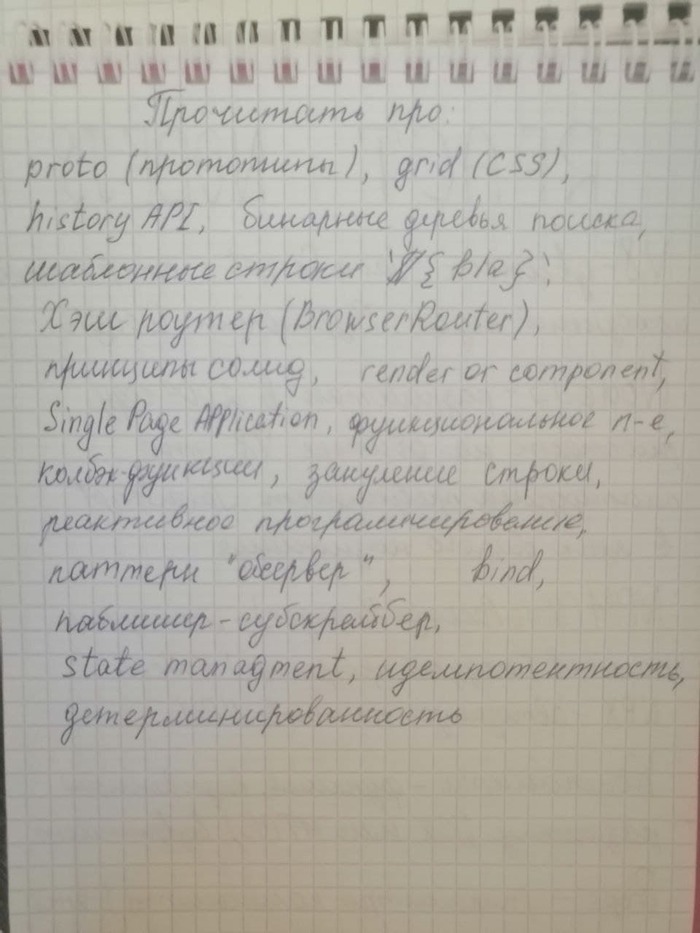 Прочитать про:
proto (прототипы), grid (CSS),
history API, бинарные деревья поиска,
шаблонные строки `${bla}`.
Хэш роутер (BrowserRouter),
принципы солид, render or component,
Single Page Application, функциональное п-е,
колбэк-функции, зануление строки,
реактивное программирование,
паттерн "обсервер", bind,
паблишер-субскрайбер,
state managment, идемпотентность,
детерминированность